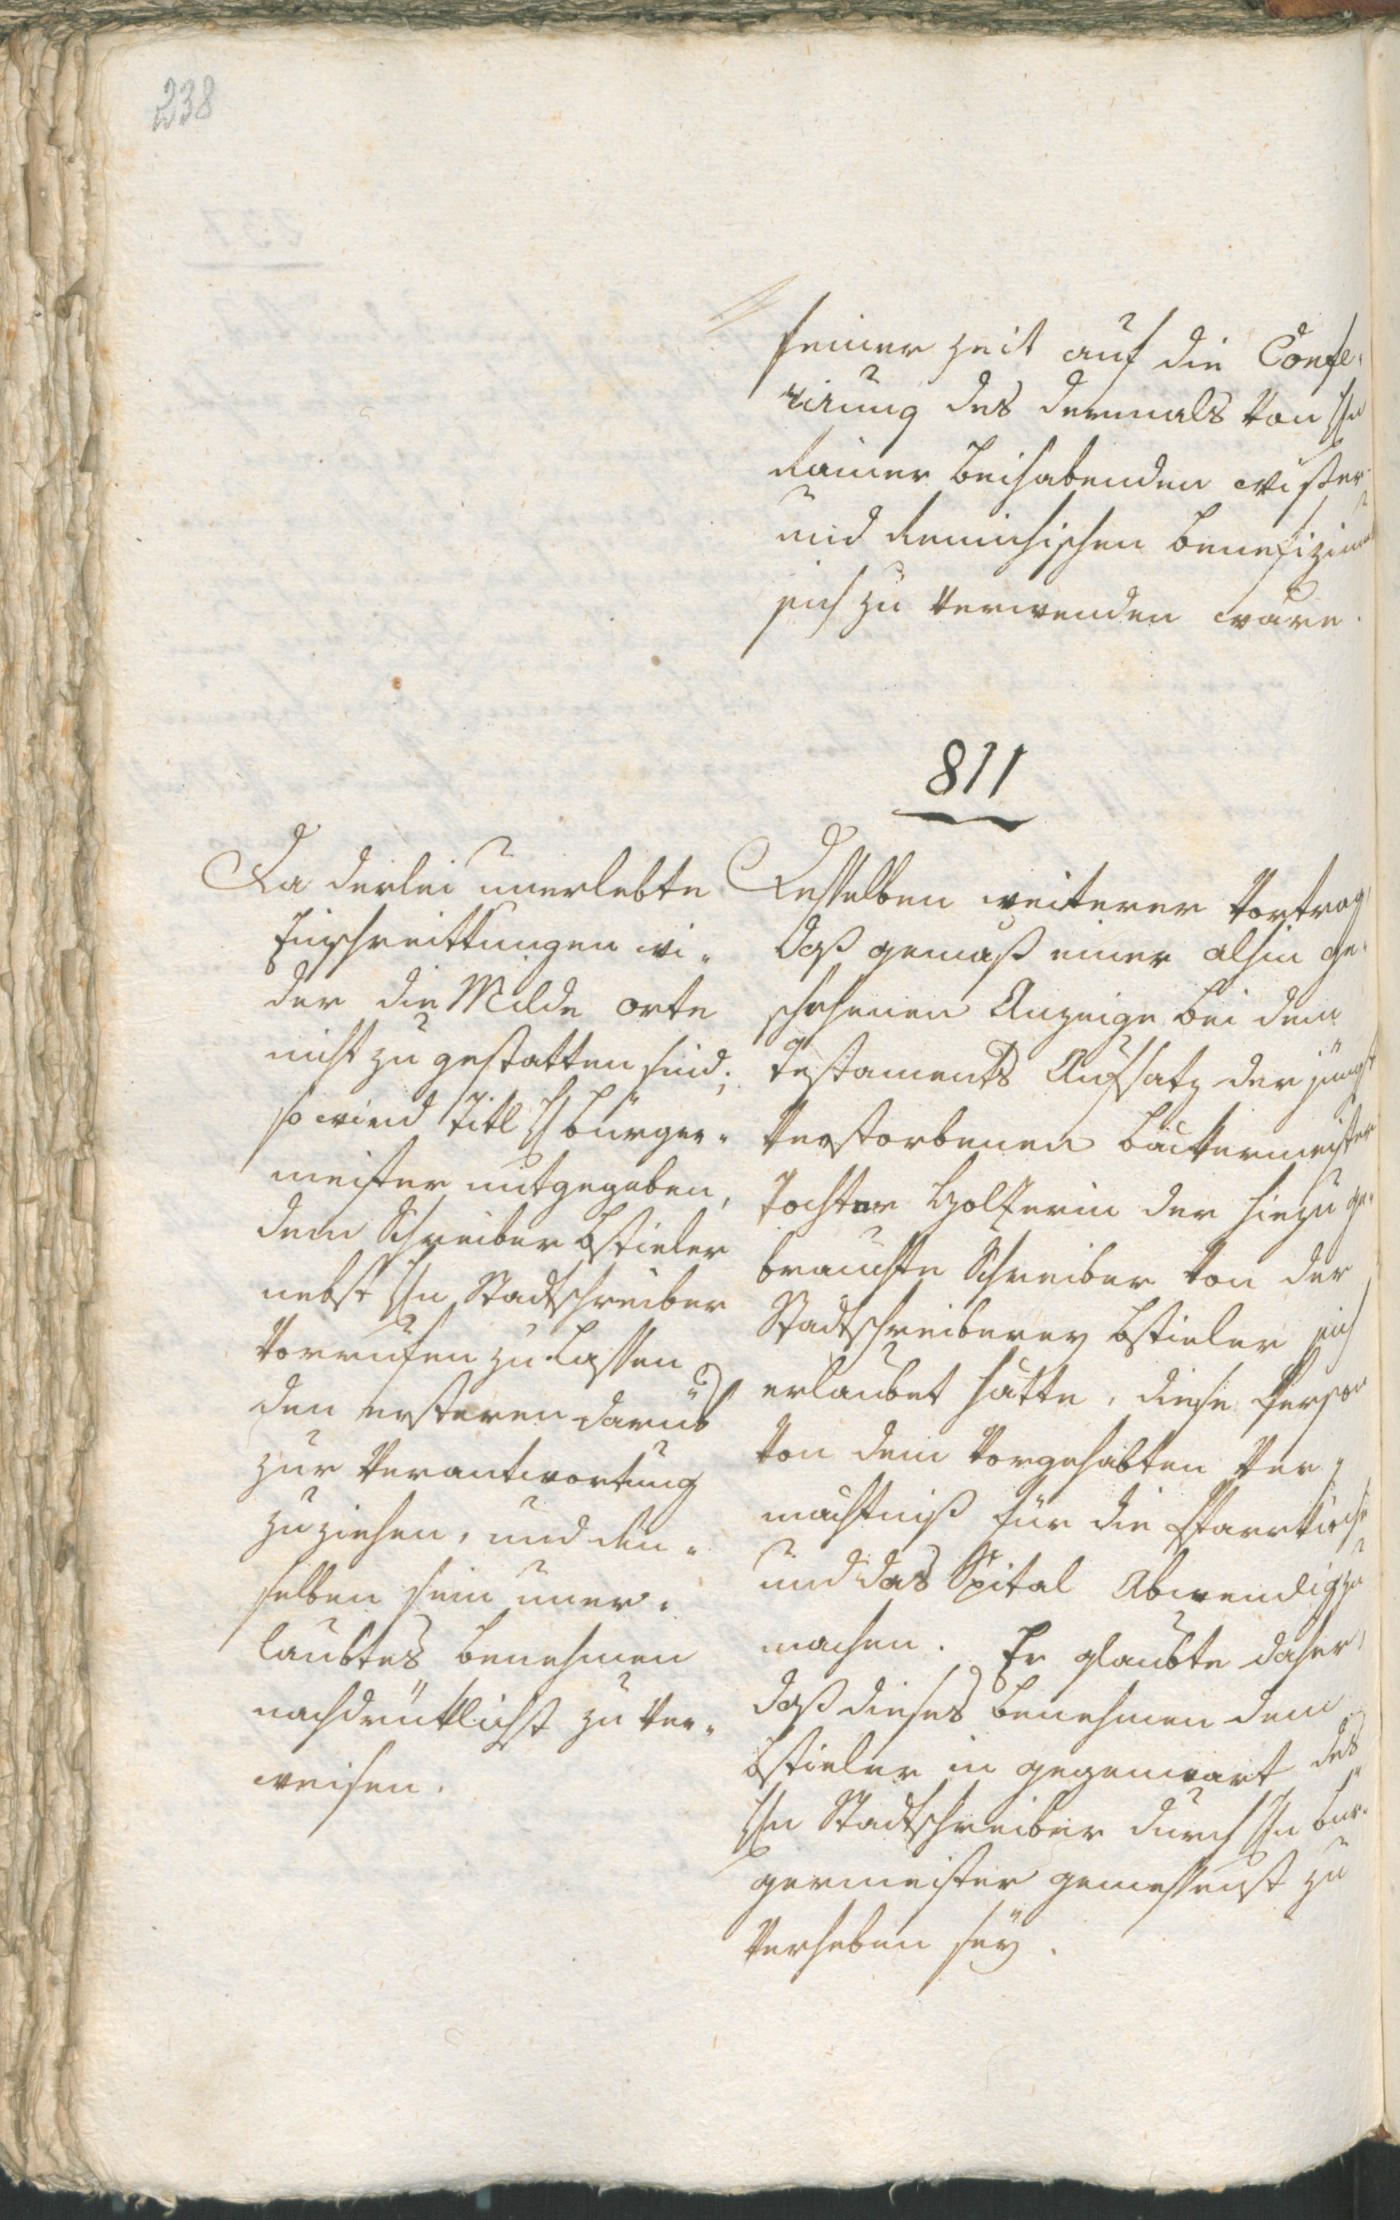 238
seiner Zeit auf die Confe-
rirung des dermals von Hn
Rainer beihabenden
und Reinischischen Benefiziums
sich zu verwenden wäre.
811
Da derlei unerlebte
Einschreittungen wi-
der die Milde orte
nicht zu gestatten sind;
so wird Titl H Bürger-
meister mitgegeben,
dem Schreiber Bstieler
nebst Hn Stadtschreiber
vorrufen zu lassen
den ersteren darüb
zur Verantwortung
zu ziehen, und den-
selben sein uner-
laubtes Benehmen
nachdrüklichst zu ver-
weisen.
Desselben weiterer Vortrag,
daß gemäß einer alhin ge-
schehenen Anzeige bei dem
Testaments Aufsatz der jüngst
verstorbenen Bäckermeister
Tochter Holzerin der hiezu ge-
brauchte Schreiber von der
Stadtschreiberey Bstieler sich
erlaubet hätte, diese Person
von dem vorgehabten Ver-
mächtniß für die Pfarrkirche
und das Spital Abwendig zu
machen. Er glaubte daher,
daß dieses Benehmen dem
Bstieler in gegenwart des
Hn Stadtschreiber durch Hn Bür-
germeister gemessenst zu
verheben sey.